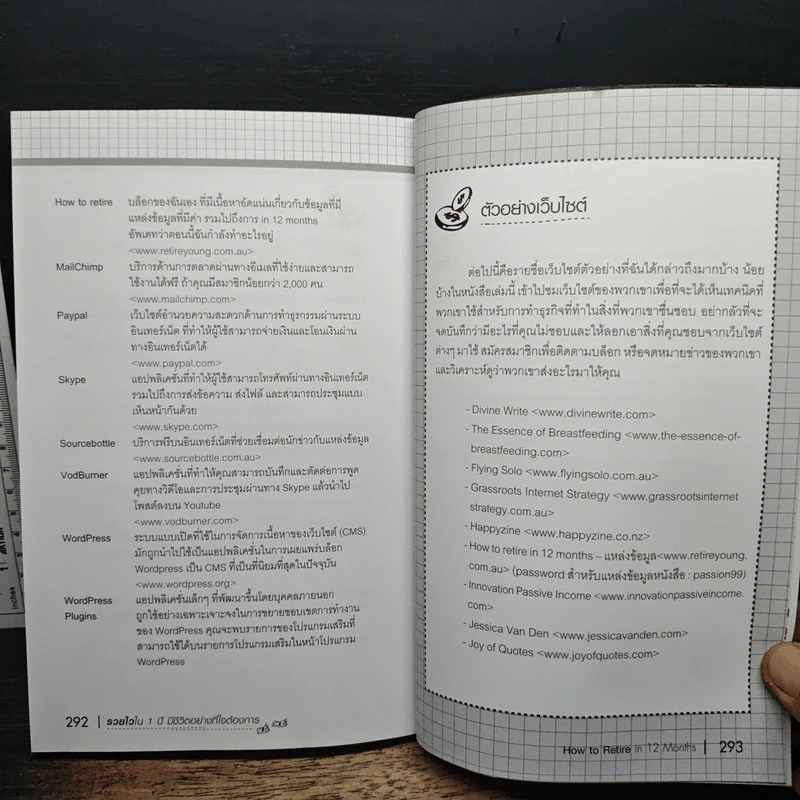 How to retire บล็อกของฉันเอง ที่มีเนื้อหาอัดแน่นเกี่ยวกับข้อมูลที่มี
แหล่งข้อมูลที่มีค่า รวมไปถึงการ in 12 months
อัพเดทว่าตอนนี้ฉันกำลังทำอะไรอยู่
<www.retireyoung.com.au>
MailChimp บริการด้านการตลาดผ่านทางอีเมลที่ใช้ง่ายและสามารถ
ใช้งานได้ฟรี ถ้าคุณมีสมาชิกน้อยกว่า 2,000 คน
<www.mailchimp.com>
Paypal เว็บไซต์อำนวยความสะดวกด้านการทำธุรกรรมผ่านระบบ
อินเทอร์เน็ต ที่ทำให้ผู้ใช้สามารถจ่ายเงินและโอนเงินผ่าน
ทางอินเทอร์เน็ตได้
<www.paypal.com>
Skype แอปพลิเคชั่นที่ทำให้ผู้ใช้สามารถโทรศัพท์ผ่านทางอินเทอร์เน็ต
รวมไปถึงการส่งข้อความ ส่งไฟล์ และสามารถประชุมแบบ
เห็นหน้ากันด้วย
<www.skype.com>
Sourcebottle บริการฟรีบนอินเทอร์เน็ตที่ช่วยเชื่อมต่อนักข่าวกับแหล่งข้อมูล
<www.sourcebottle.com.au>
VodBurner แอปพลิเคชั่นที่ทำให้คุณสามารถบันทึกและตัดต่อการพูด
คุยทางวิดีโอและการประชุมผ่านทาง Skype แล้วนำไป
โพสต์ลงบน Youtube
<www.vodburner.com>
WordPress ระบบแบบเปิดที่ใช้ในการจัดการเนื้อหาของเว็บไซต์ (CMS)
มักถูกนำไปใช้เป็นแอปพลิเคชั่นในการเผยแพร่บล็อก
Wordpress เป็น CMS ที่เป็นที่นิยมที่สุดในปัจจุบัน
<www.wordpress.org>
WordPress แอปพลิเคชั่นเล็กๆ ที่พัฒนาขึ้นโดยบุคคลภายนอก
Plugins ถูกใช้อย่างเฉพาะเจาะจงในการขยายขอบเขตการทำงาน
ของ WordPress คุณจะพบรายการของโปรแกรมเสริมที่
สามารถใช้ได้บนรายการโปรแกรมเสริมในหน้าโปรแกรม
WordPress
292 | รวยไวใน 1 ปี มีชีวิตอย่างที่ใจต้องการ
ตัวอย่างเว็บไซต์
ต่อไปนี้คือรายชื่อเว็บไซต์ตัวอย่างที่ฉันได้กล่าวถึงมากบ้าง น้อย
บ้างในหนังสือเล่มนี้ เข้าไปชมเว็บไซต์ของพวกเขาเพื่อที่จะได้เห็นเทคนิคที่
พวกเขาใช้สำหรับการทำธุรกิจที่ทำในสิ่งที่พวกเขาชื่นชอบ อย่ากลัวที่จะ
จดบันทึกว่ามีอะไรที่คุณไม่ชอบและให้ลอกเอาสิ่งที่คุณชอบจากเว็บไซต์
ต่างๆ มาใช้ สมัครสมาชิกเพื่อติดตามบล็อก หรือจดหมายข่าวของพวกเขา
และวิเคราะห์ดูว่าพวกเขาส่งอะไรมาให้คุณ
- Divine Write <www.divinewrite.com>
- The Essence of Breastfeeding <www.the-essence-of-
breastfeeding.com>
- Flying Solo <www.flyingsolo.com.au>
- Grassroots Internet Strategy <www.grassrootsinternet
strategy.com.au>
- Happyzine <www.happyzine.co.nz>
- How to retire in 12 months – แหล่งข้อมูล<www.retireyoung.
com.au> (password สำหรับแหล่งข้อมูลหนังสือ : passion99)
- Innovation Passive Income <www.innovationpassiveincome.
com>
- Jessica Van Den <www.jessicavanden.com>
- Joy of Quotes <www.joyofquotes.com>
How to Retire in 12 Months | 293